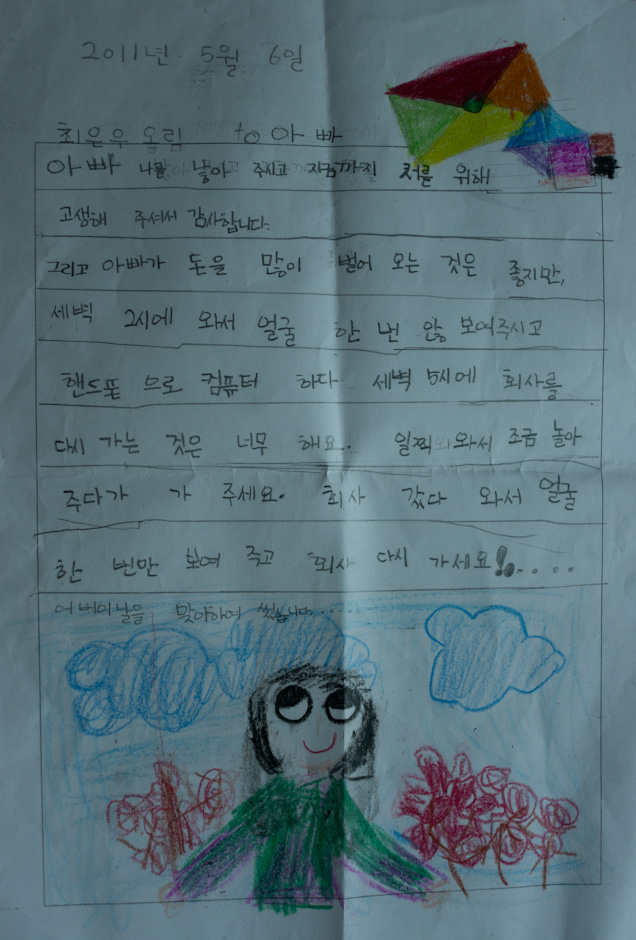 2011년 5월 6일
최은우 올림 to 아빠
아빠 나를 낳아 주시고 지금까지 저를 위해
고생해 주셔서 감사합니다.
그리고 아빠가 돈을 많이 벌어 오는 것은 좋지만,
세벽 2시에 와서 얼굴 한 번 않 보여주시고
핸드폰 으로 컴퓨터 하다 세벽 5시에 회사를
다시 가는 것은 너무 해요. 일찍 와서 조금 놀아
주다가 가 주세요. 회사 갔다 와서 얼굴
한 번만 보여 주고 회사 다시 가세요!.....
어버이날을 맞이하여 썼습니다...